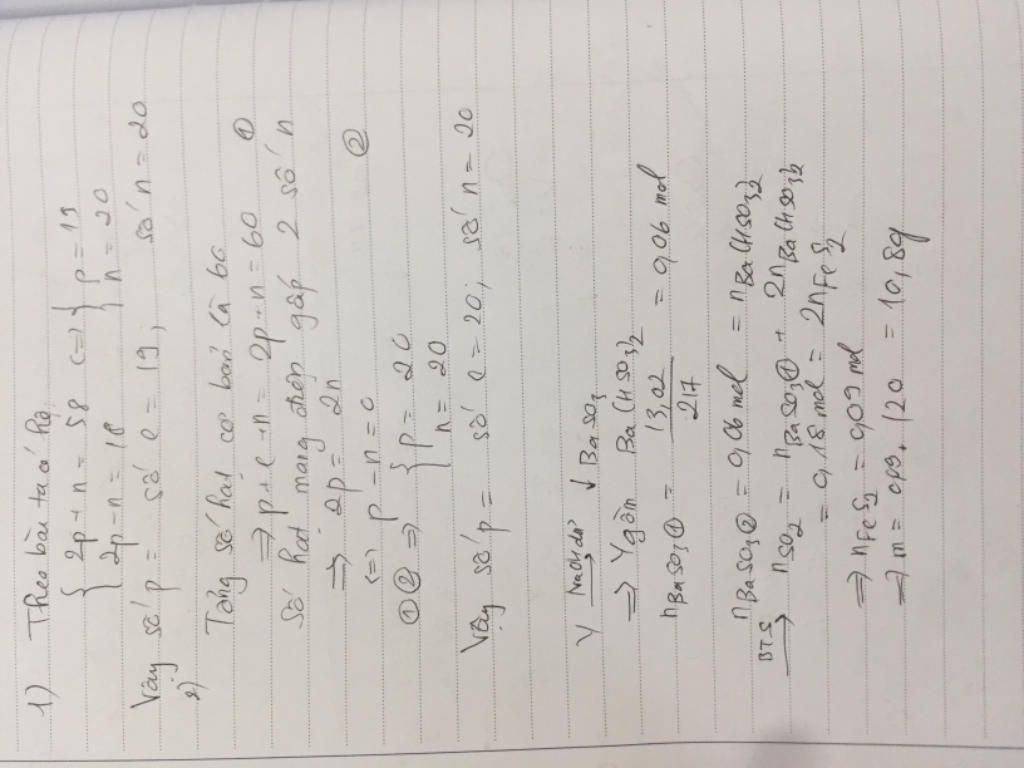 1) Theo bài ta có hệ
{ 2p + n = 58 (=) { p = 19
2p - n = 18 n = 20
Vậy số p = số e = 19, số n = 20
2) Tổng số hạt cơ bản là 60
⇒ p + e + n = 2p + n = 60 ①
Số hạt mang điện gấp 2 số n
⇒ 2p = 2n
(=) p - n = 0 ②
①② ⇒ { p = 20
n = 20
Vậy số p = số e = 20; số n = 20
Y NaOH dư → ↓ BaSO3
⇒ Y gồm Ba(HSO3)2
nBaSO3① = 13,02 / 217 = 0,06 mol
nBaSO3② = 0,06 mol = nBa(HSO3)2
BTS → nSO2 = nBaSO3① + 2nBa(HSO3)2
= 0,18 mol = 2nFeS2
⇒ nFeS2 = 0,09 mol
⇒ m = 0,09 . 120 = 10,8g